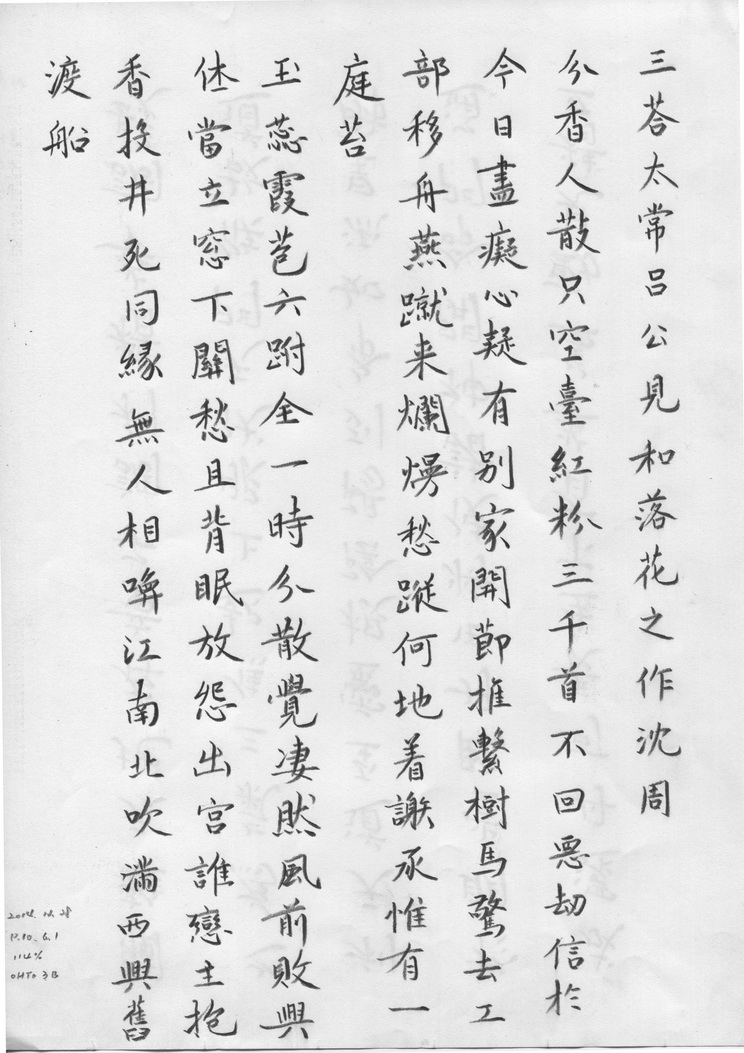 三荅太常呂公見和落花之作沈周
分香人散只空臺紅粉三千首不回惡劫信於
今日盡癡心疑有別家開節推繫樹馬驚去工
部移舟燕蹴来爛熳愁蹤何地着謝承惟有一
庭苔
玉蕊霞苞六跗全一時分散覺凄然風前敗興
休當立窓下關愁且背眠放怨出宮誰戀主抱
香投井死同緣無人相喚江南北吹滿西興舊
渡船
114%